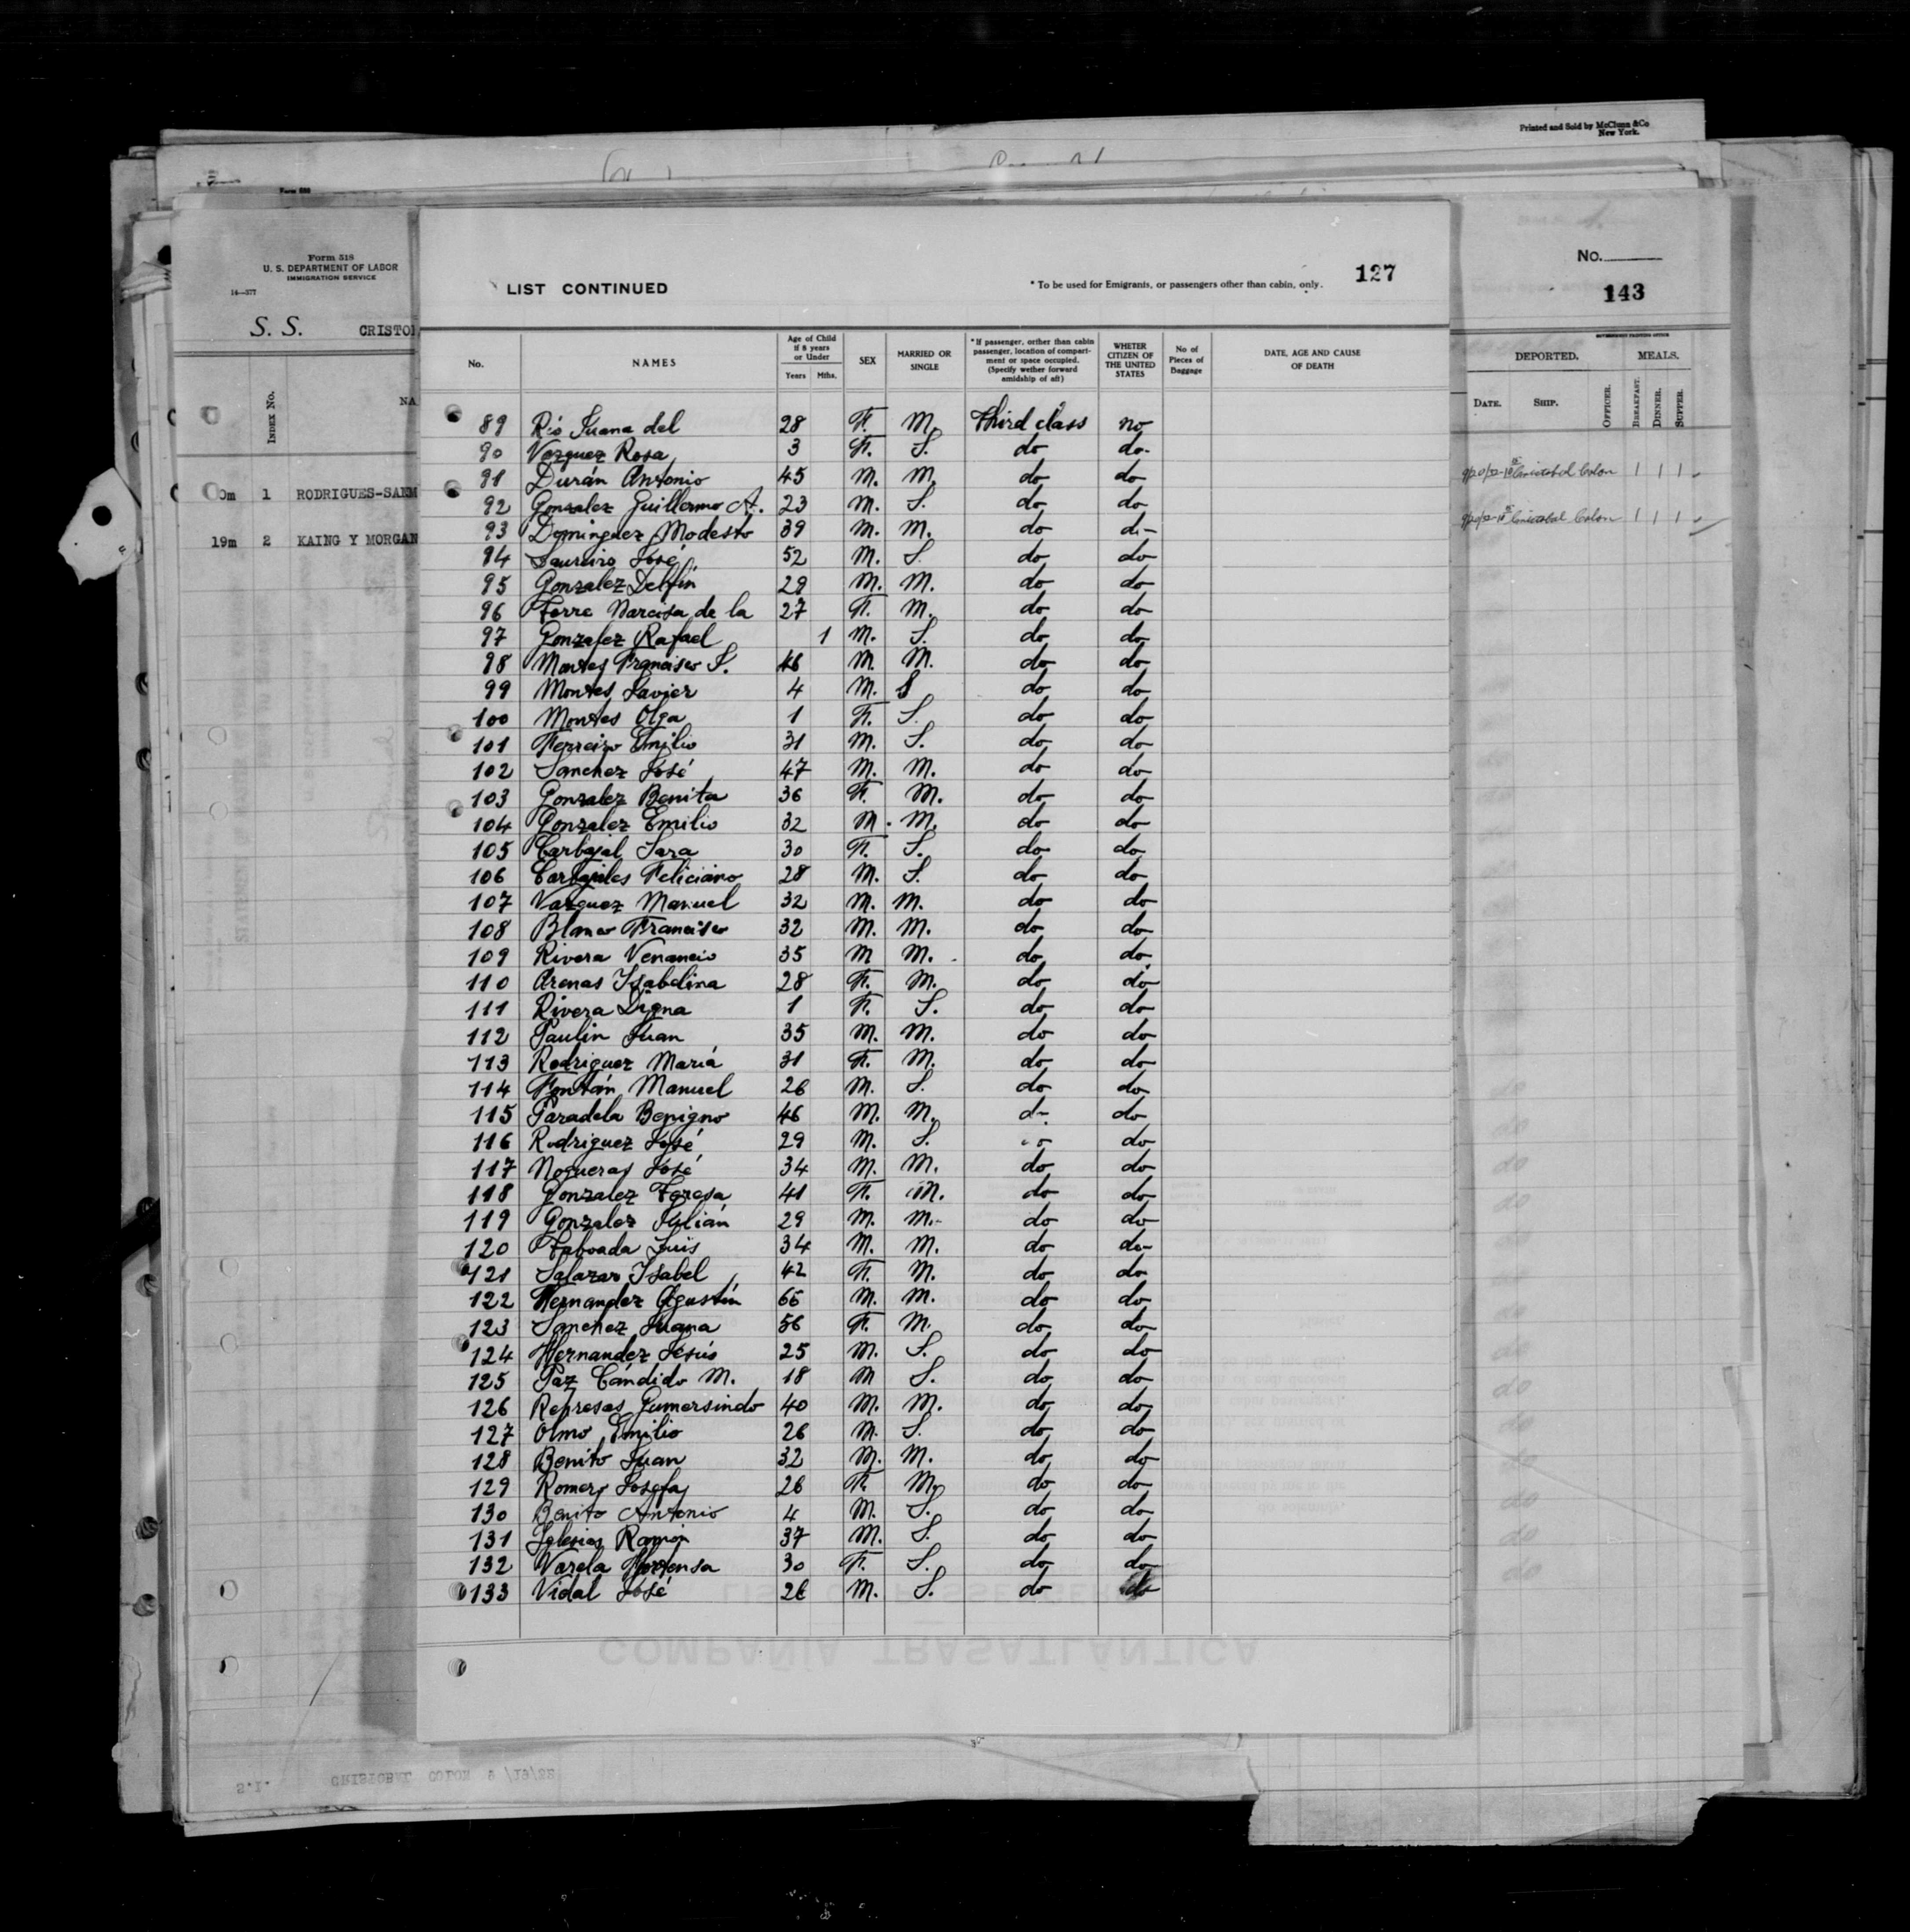 Printed and Sold by McClunn &Co
New York.
Form 518
U. S. DEPARTMENT OF LABOR
IMMIGRATION SERVICE
14—577
S. S. CRISTO
INDEX No.
NA
0m 1 RODRIGUES-SANM
19m 2 KAING Y MORGAN
LIST CONTINUED
* To be used for Emigrants, or passengers other than cabin, only.
127
No.
NAMES
Age of Child if 8 years or Under
Years Mths.
SEX
MARRIED OR SINGLE
* If passenger, orther than cabin passenger, location of compartment or space occupied. (Specify wether forward amidship of aft)
WHETER CITIZEN OF THE UNITED STATES
No of Pieces of Baggage
DATE, AGE AND CAUSE OF DEATH
89 Rio Juana del 28 F. M. Third class no
90 Vazquez Rosa 3 F. S. do do
91 Durán Antonio 45 M. M. do do
92 Gonzalez Guillermo A. 23 M. S. do do
93 Dominguez Modesto 39 M. M. do do
94 Laureiro José 52 M. S. do do
95 Gonzalez Delfín 29 M. M. do do
96 Torre Narcisa de la 27 F. M. do do
97 Gonzalez Rafael 1 M. S. do do
98 Montes Francisco S. 46 M. M. do do
99 Montes Javier 4 M. S do do
100 Montes Olga 1 F. S. do do
101 Ferreiro Emilio 31 M. S. do do
102 Sanchez José 47 M. M. do do
103 Gonzalez Benita 36 F. M. do do
104 Gonzalez Emilio 32 M. M. do do
105 Carbajal Sara 30 F. S. do do
106 Carbajales Feliciano 28 M. S. do do
107 Vazquez Manuel 32 M. M. do do
108 Blanco Francisco 32 M. M. do do
109 Rivera Venancio 35 M M. do do
110 Arenas Isabelina 28 F. M. do do
111 Rivera Digna 1 F. S. do do
112 Paulin Juan 35 M. M. do do
113 Rodriguez María 31 F. M. do do
114 Fontán Manuel 26 M. S. do do
115 Paradela Benigno 46 M. M. do do
116 Rodriguez José 29 M. S. do do
117 Nogueras José 34 M. M. do do
118 Gonzalez Teresa 41 F. M. do do
119 Gonzalez Julián 29 M. M. do do
120 Taboada Luis 34 M. M. do do
121 Salazar Isabel 42 F. M. do do
122 Hernandez Agustín 66 M. M. do do
123 Sanchez Juana 56 F. M. do do
124 Hernandez Jesús 25 M. S. do do
125 Paz Cándido M. 18 M S. do do
126 Represas Gumersindo 40 M. M. do do
127 Olmo Emilio 26 M. S. do do
128 Benito Juan 32 M. M. do do
129 Romero Josefa 26 F. M. do do
130 Benito Antonio 4 M. S. do do
131 Iglesias Ramón 37 M. S. do do
132 Varela Hortensa 30 F. S. do do
133 Vidal José 26 M. S. do do
No.
143
DEPORTED. MEALS.
DATE. SHIP. OFFICER. BREAKFAST. DINNER. SUPPER.
Cristobal Colon 1 1 1
Cristobal Colon 1 1 1
COMPAÑÍA TRASATLÁNTICA
S.I. CRISTOBAL COLON 9/19/22